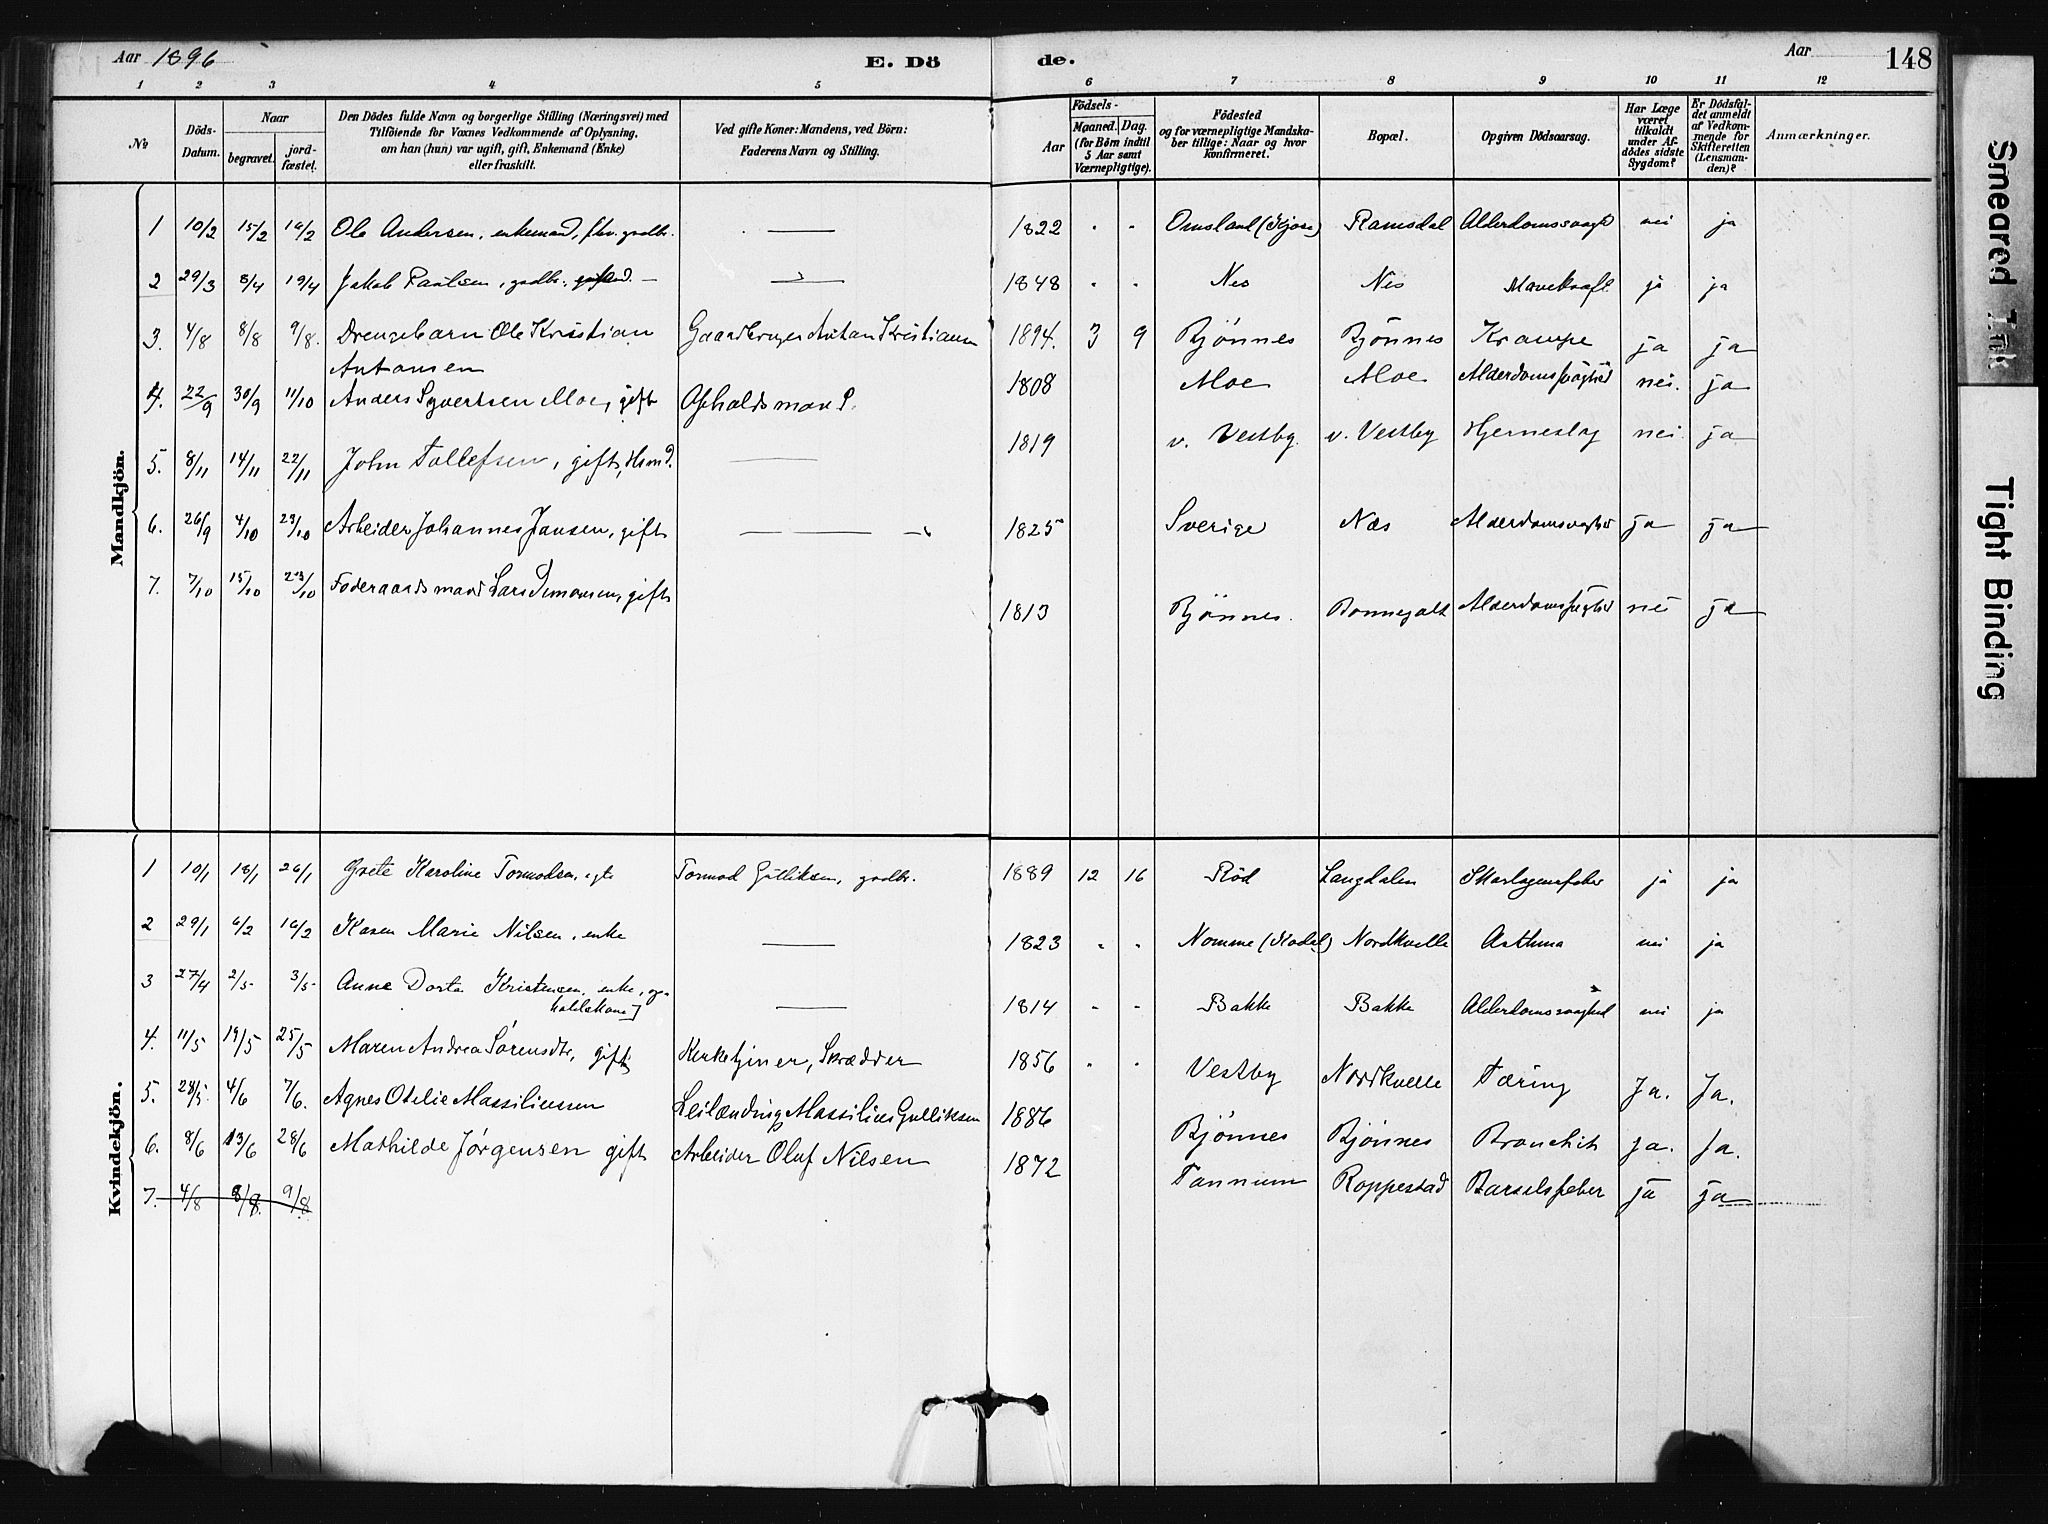 Aar 1896
E. Dö
de.
Aar
148
1 2 3 4 5 6 7 8 9 10 11 12
No
Döds-
Datum.
Naar
begravet.
jord-
fæstet.
Den Dödes fulde Navn og borgerlige Stilling (Næringsvei) med
Tilföiende for Voxnes Vedkommende af Oplysning,
om han (hun) var ugift, gift, Enkemand (Enke)
eller fraskilt.
Ved gifte Koner: Mandens, ved Börn:
Faderens Navn og Stilling.
Födsels-
Aar
Maaned. Dag.
(for Börn indtil
5 Aar samt
Værnepligtige).
Födested
og for værnepligtige Mandska-
ber tillige: Naar og hvor
konfirmeret.
Bopæl.
Opgiven Dödsaarsag.
Har Læge
været
tilkaldt
under Af-
dödes sidste
Sygdom?
Er Dödsfal-
det anmeldt
af Vedkom-
mende for
Skifteretten
(Lensman-
den)?
Anmærkninger.
Mandkjön.
1 10/2 15/2 16/2 Ole Andersen, enkemand, fhv. gaardbr. — 1822 " " Omsland (Kjose) Ramsdal Alderdomssvaghed nei ja
2 29/3 8/4 19/4 Jakob Paulsen, gaardbr. — 1848 " " Nes Nes Mavekræft ja ja
3. 4/8 8/8 9/8. Drengebarn Ole Kristian Gaardbruger Anton Kristiansen 1894. 3 9 Bjönnes Bjönnes Krampe ja ja
Antonsen
4. 22/9 30/9 11/10 Anders Syvertsen Moe, gift Opholdsmand 1808 Moe Moe Alderdomssvaghed nei. ja
5. 8/11 14/11 22/11 John Tollefsen, gift, Hsmd. — 1819 v. Vestby. v. Vestby Hjerneslag nei. ja
6. 26/9 4/10 23/10 Arbeider Johannes Jansen, gift — 1825 Sverige Næs Alderdomssvaghed ja ja
7. 7/10 15/10 23/10 Foderaadsmand Lars Simonsen, gift 1813 Bjönnes. Bonnegolt Alderdomssvaghed nei ja
Kvindekjön.
1 10/1 18/1 26/1 Grete Karoline Tormodsen, egte Tormod Gulliksen, gaardbr. 1889 12 16 Röd Langdalen Skarlagensfeber ja ja
2 29/1 6/2 16/2 Karen Marie Nilsen, enke — 1823 " " Nomme (Hodal) Nordkvelle Asthma nei ja
3 27/4 2/5 3/5 Anne Dorte Kristensen, enke, op-
holdskone — 1814 " " Bakke Bakke Alderdomssvaghed nei ja
4. 11/5 19/5 25/5 Maren Andrea Sörensdtr, gift Kirketjener, Skrædder 1856 " " Vestby Nordkvelle Tæring Ja. Ja.
5. 28/5 4/6 7/6. Agnes Otelie Massiliussen Leilænding Massilius Gulliksen 1886 Bjönnes Bjönnes Bronchit ja. Ja.
6. 8/6 13/6 28/6 Mathilde Jörgensen gift Arbeider Oluf Nilsen 1872 Tannum Roppestad Barselsfeber ja ja
7. 4/8 8/8. 9/8.
Smeared Ink
Tight Binding